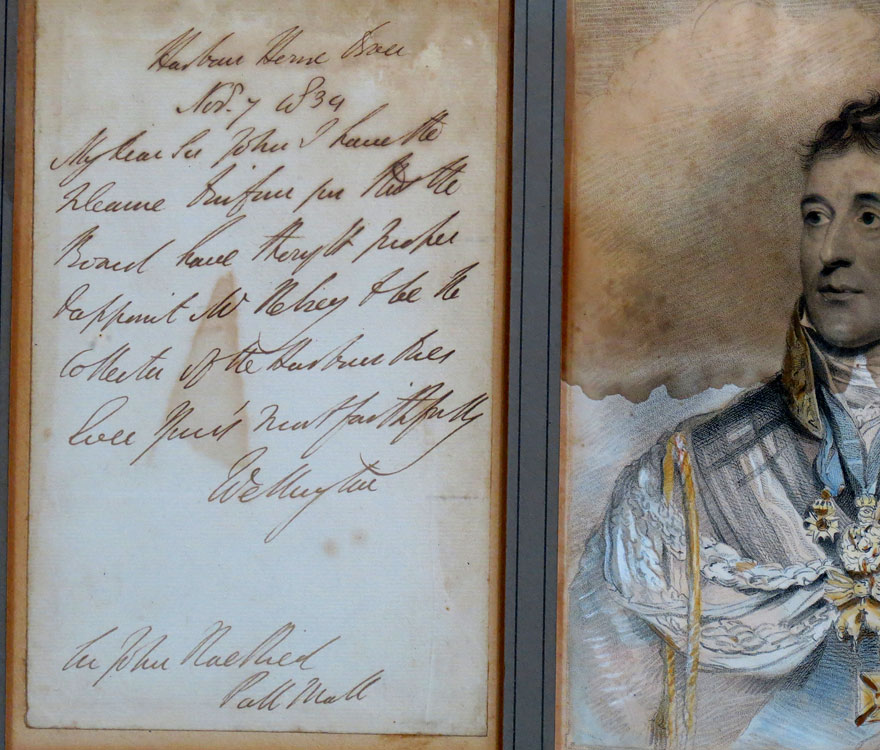 Harbour House Dover
Nov. 7 1834
My dear Sir John I have the
pleasure to inform you that the
Board have thought proper
to appoint Mr to be the
Collector of the Harbour Dues
Ever Yours most faithfully
Wellington
Sir John
Pall Mall